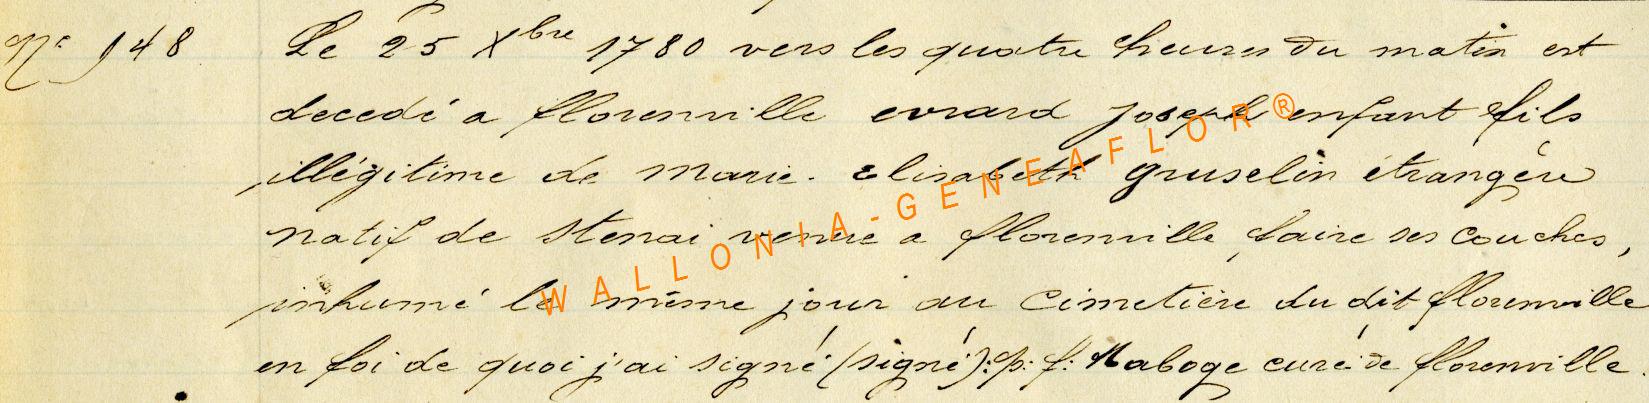 Nº 148 Le 25 Xbre 1780 vers les quatre heures du matin est
decedé a florenville evrard joseph enfant fils
illégitime de marie. elisabeth gruselin étrangére
natif de stenai venue a florenville faire ses couches,
inhumé le même jour au cimetière du dit florenville
en foi de quoi j'ai signé (signé): p: f: Maboge curé de florenville.
WALLONIA-GENEAFLOR®